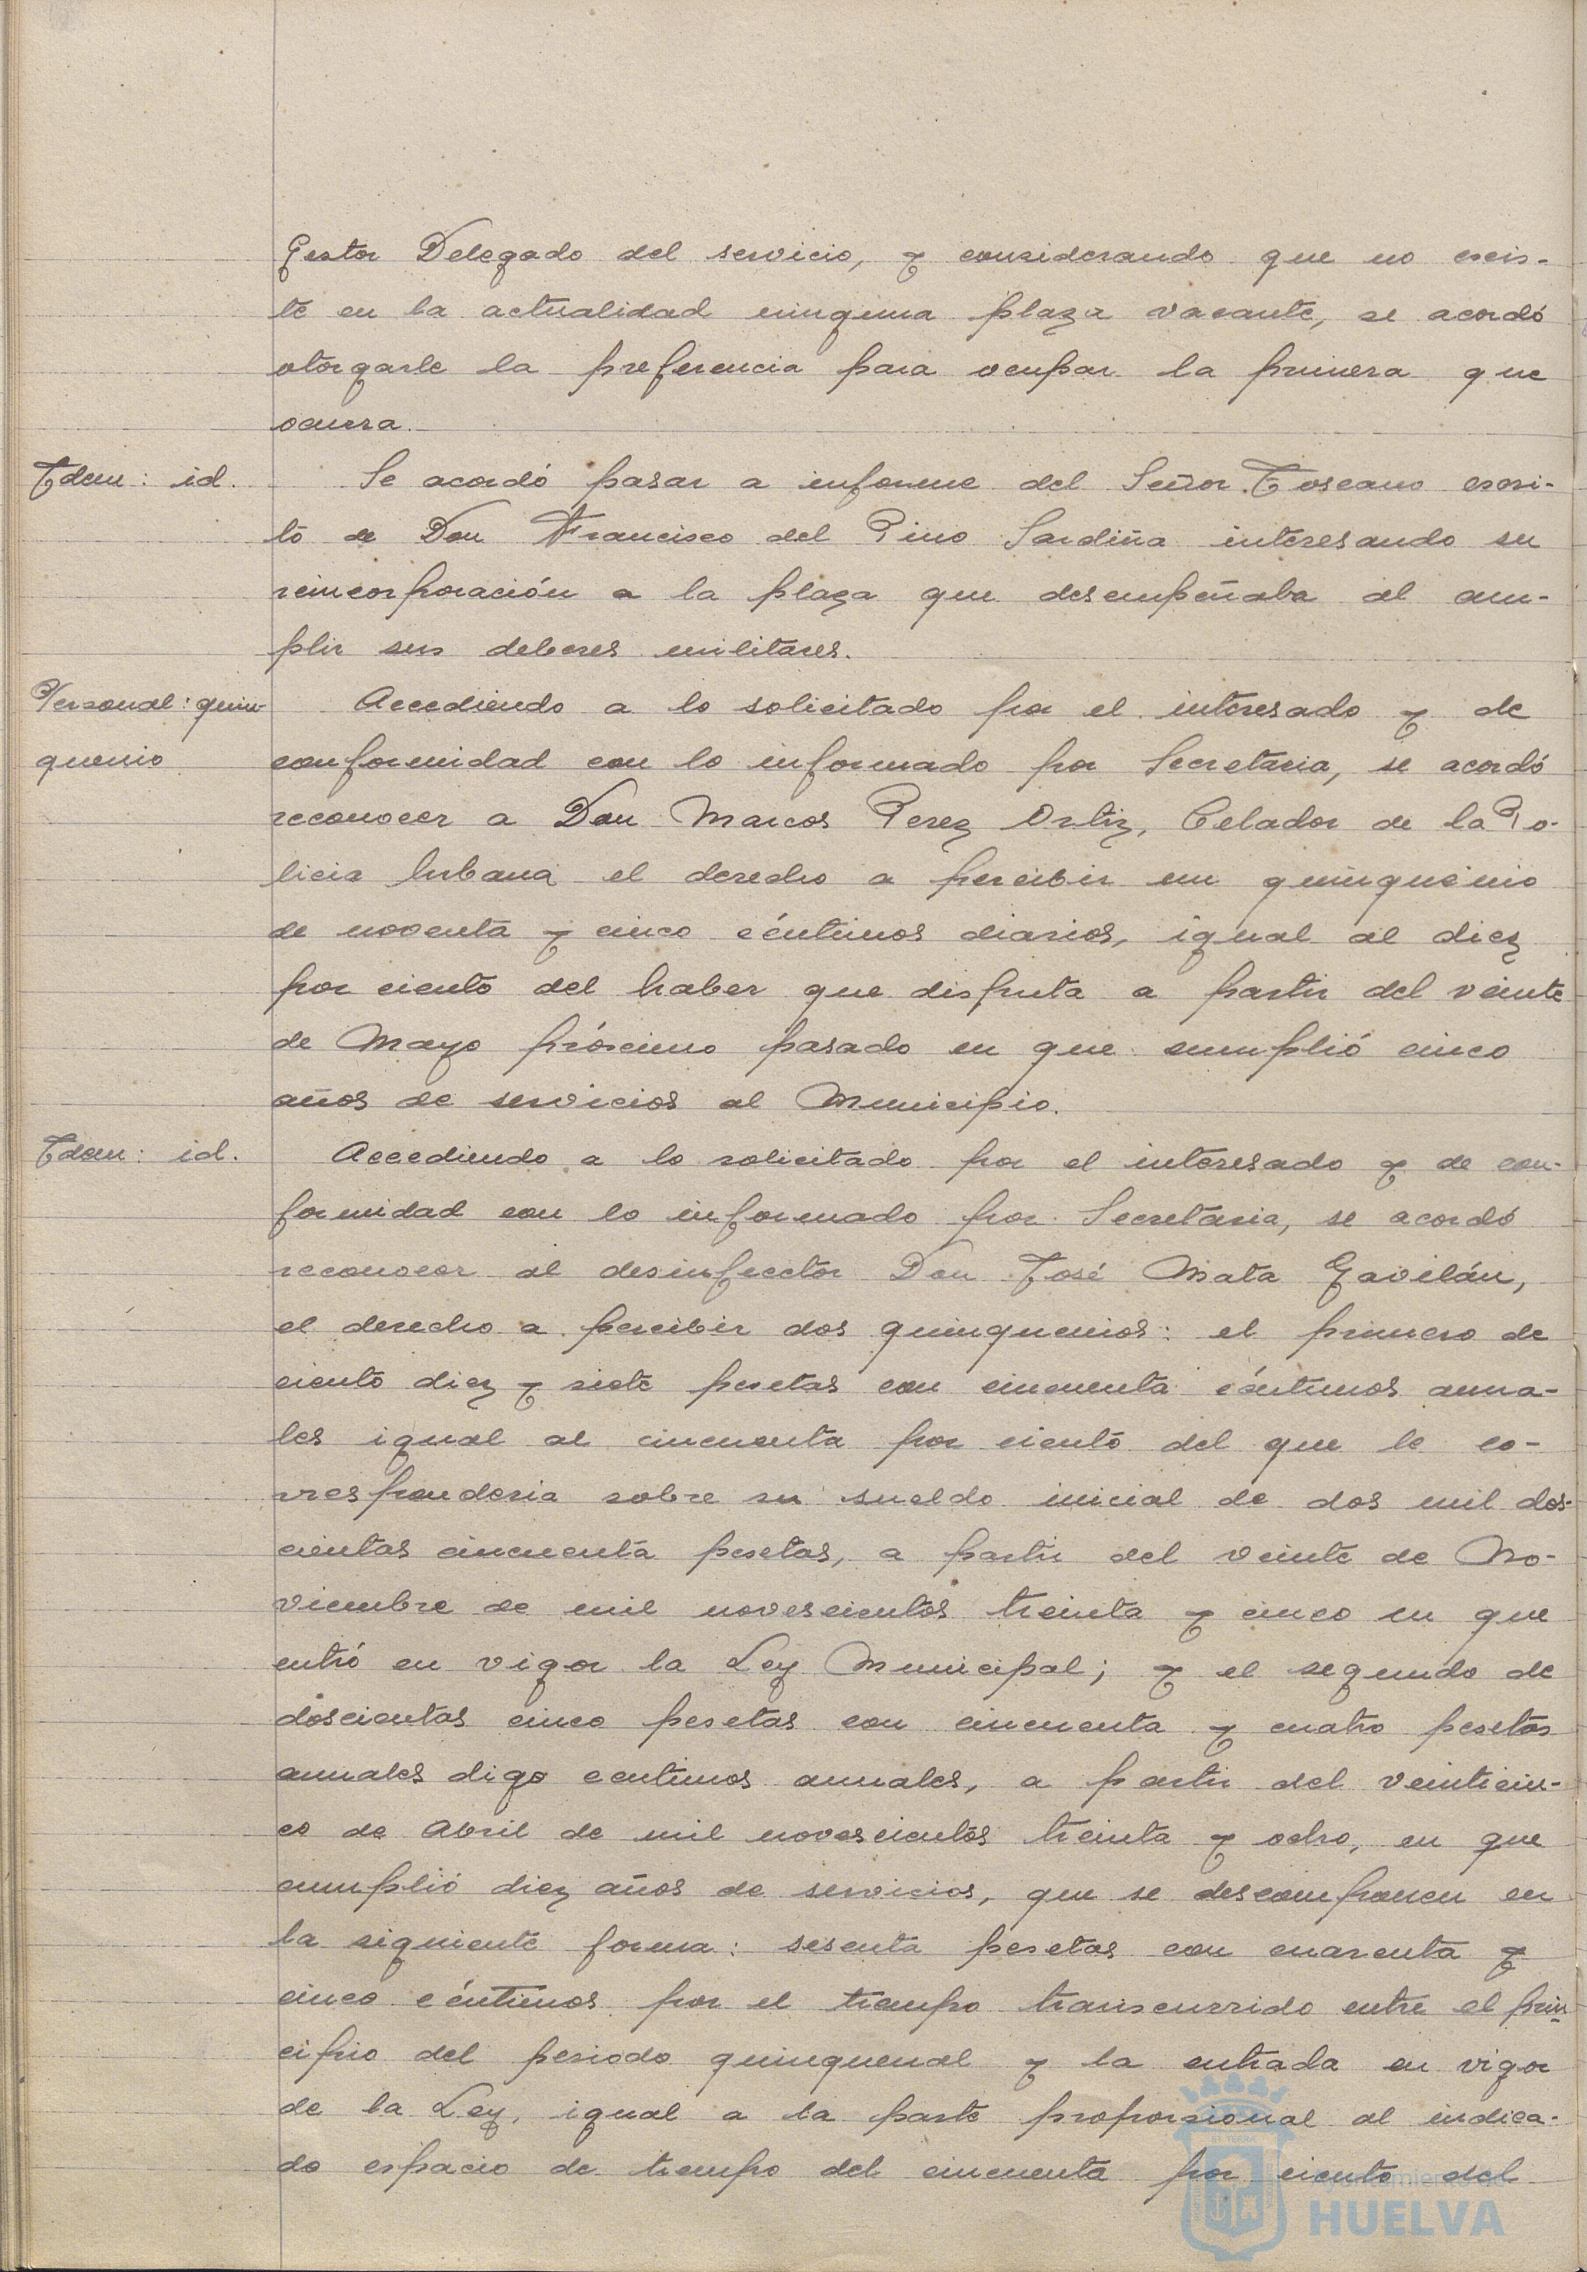 Gestor Delegado del servicio, y considerando que no exis-
te en la actualidad ninguna plaza vacante, se acordó
otorgarle la preferencia para ocupar la primera que
ocurra.
Idem: id.
Se acordó pasar a informe del Señor Toscano escri-
to de Don Francisco del Pino Sardiña interesando su
reincorporación a la plaza que desempeñaba al cum-
plir sus deberes militares.
Personal: quin-
quenio
Accediendo a lo solicitado por el interesado y de
conformidad con lo informado por Secretaria, se acordó
reconocer a Don Marcos Perez Ortiz, Celador de la Po-
licia Urbana el derecho a percibir un quinquenio
de noventa y cinco céntimos diarios, igual al diez
por ciento del haber que disfruta a partir del veinte
de Mayo próximo pasado en que cumplió cinco
años de servicios al Municipio.
Idem: id.
Accediendo a lo solicitado por el interesado y de con-
formidad con lo informado por Secretaria, se acordó
reconocer al desinfector Don José Mata Gavilán,
el derecho a percibir dos quinquenios: el primero de
ciento diez y siete pesetas con cincuenta céntimos anua-
les igual al cincuenta por ciento del que le co-
rresponderia sobre su sueldo inicial de dos mil dos-
cientas cincuenta pesetas, a partir del veinte de No-
viembre de mil novescientos treinta y cinco en que
entró en vigor la Ley Municipal; y el segundo de
doscientas cinco pesetas con cincuenta y cuatro pesetas
anuales digo centimos anuales, a partir del veinticin-
co de Abril de mil novescientos treinta y ocho, en que
cumplió diez años de servicios, que se descomponen en
la siguiente forma: sesenta pesetas con cuarenta y
cinco céntimos por el tiempo transcurrido entre el prin
cipio del periodo quinquenal y la entrada en vigor
de la Ley, igual a la parte proporcional al indica-
do espacio de tiempo del cincuenta por ciento del
Ayuntamiento de
HUELVA